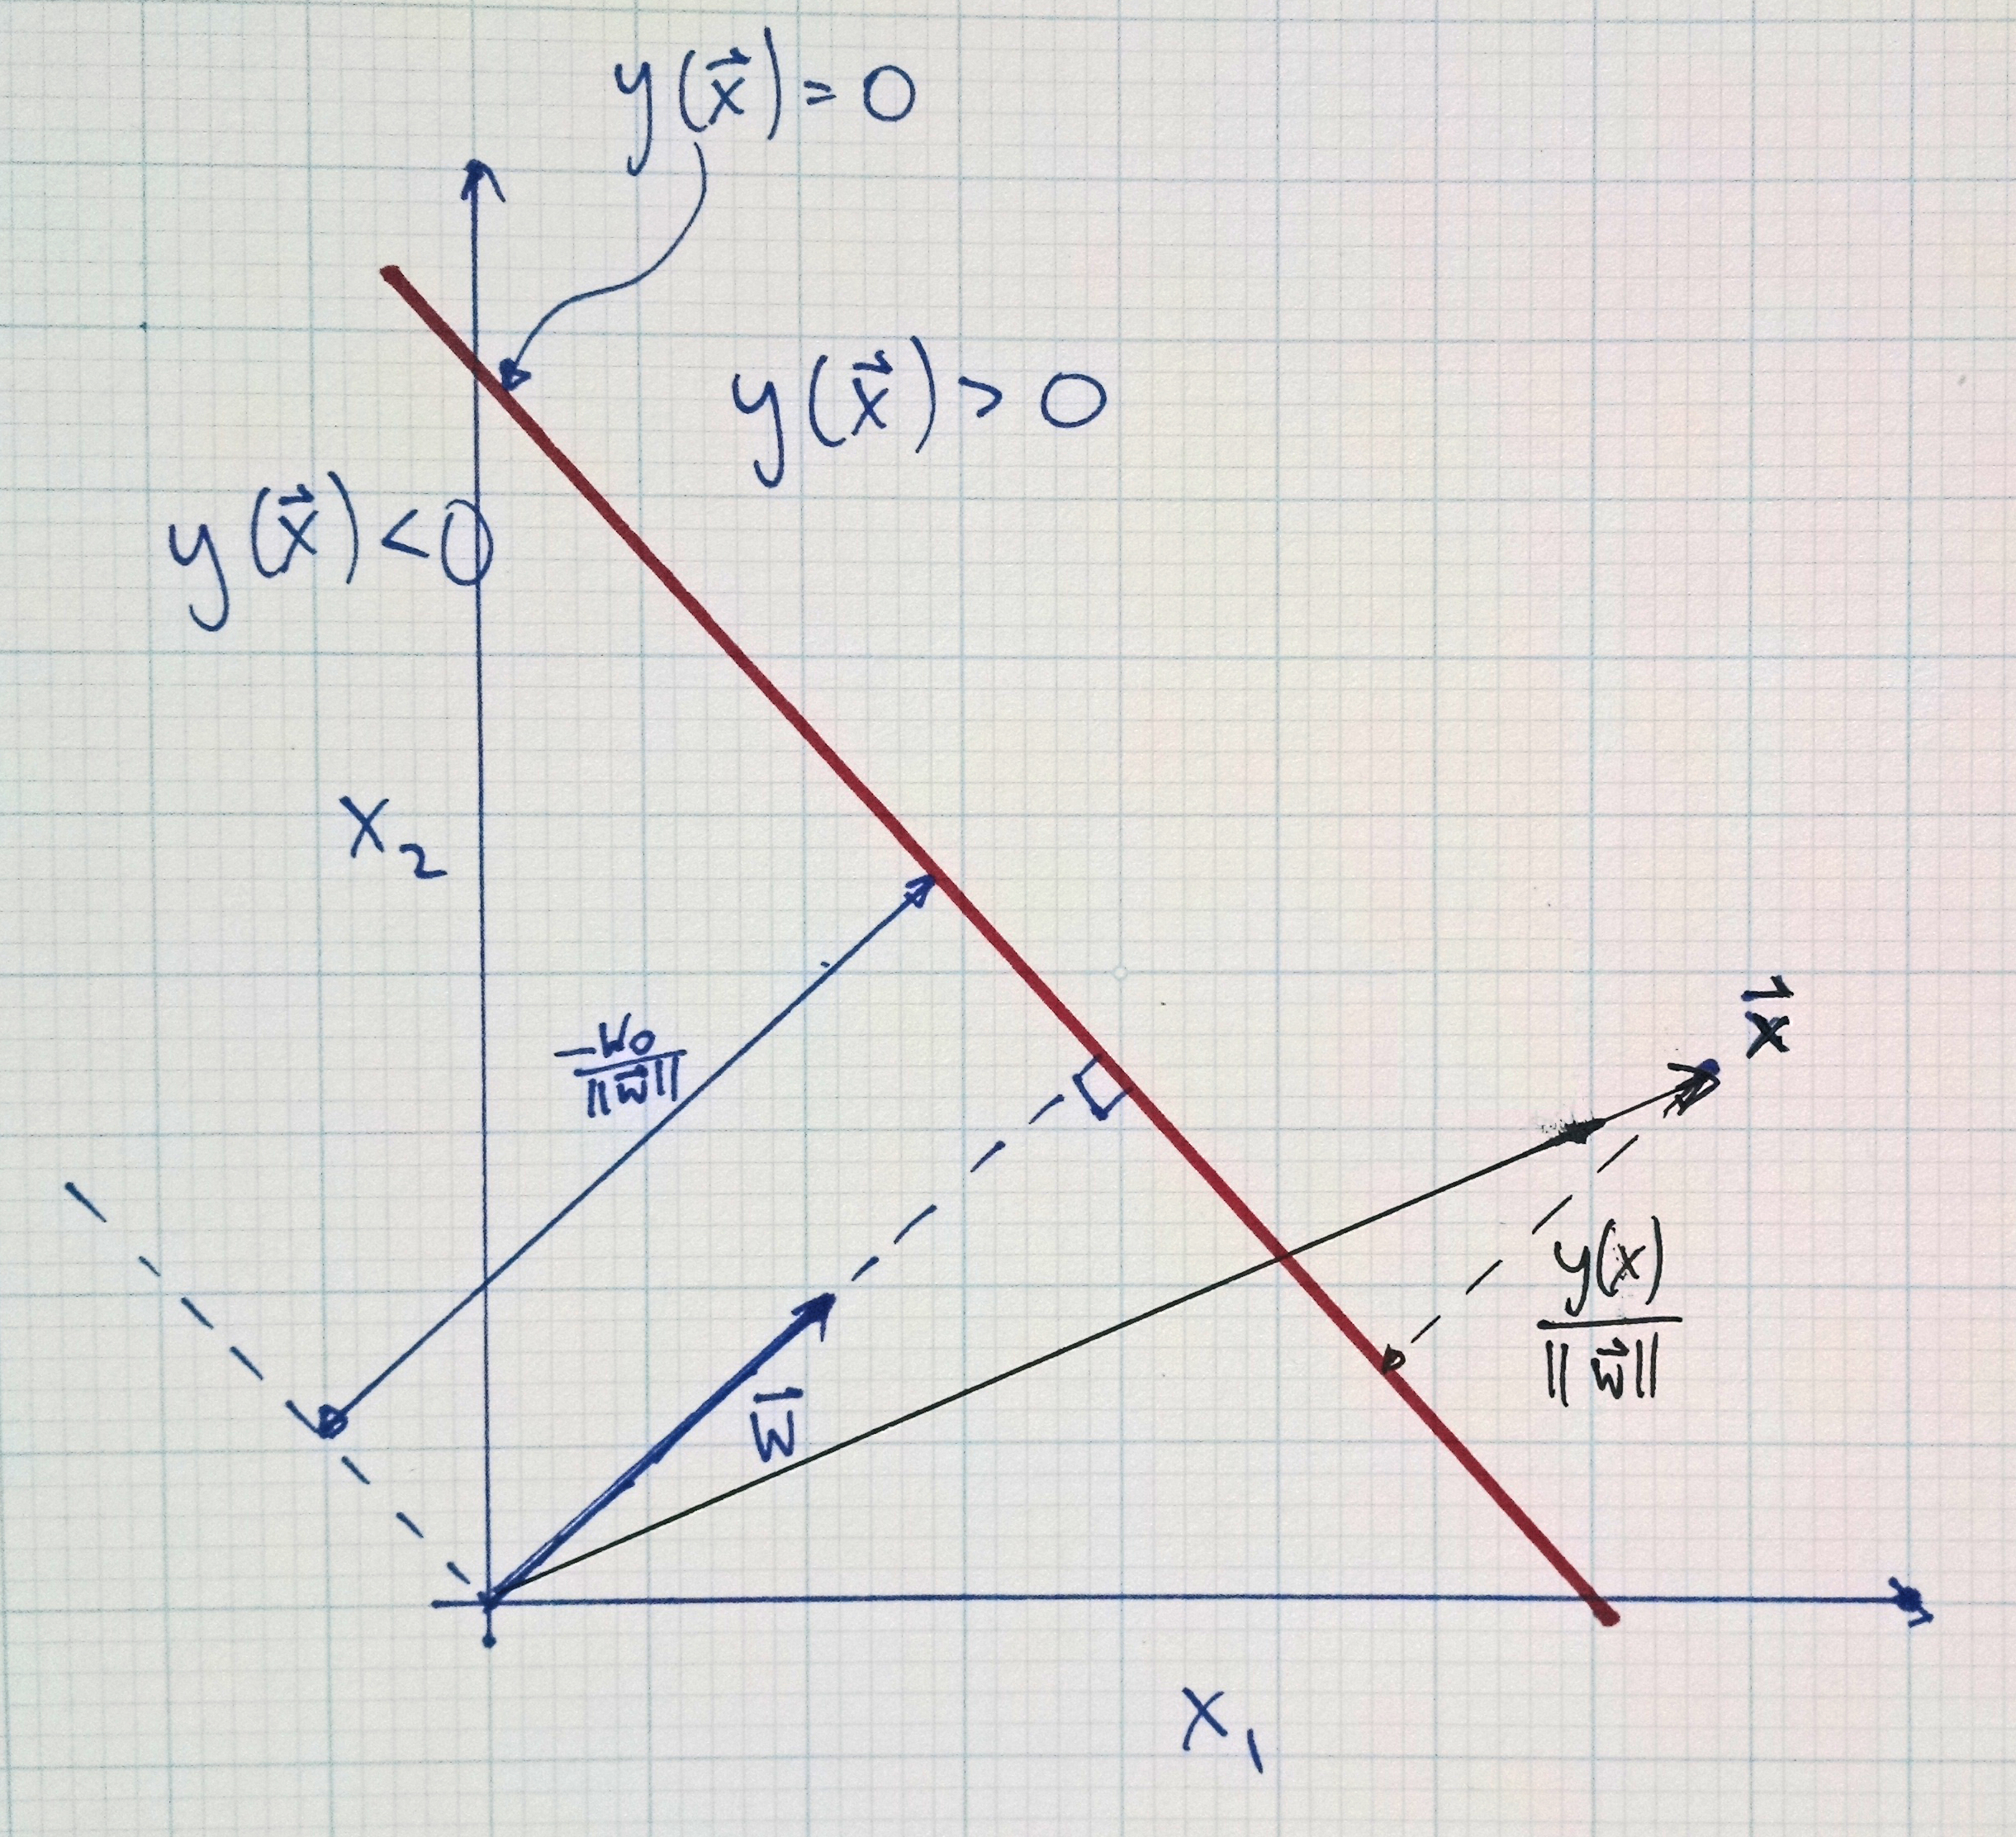 y(x⃗) = 0
y(x⃗) > 0
y(x⃗) < 0
x₂
-w₀
||w⃗||
x⃗
y(x)
||w⃗||
w⃗
x₁